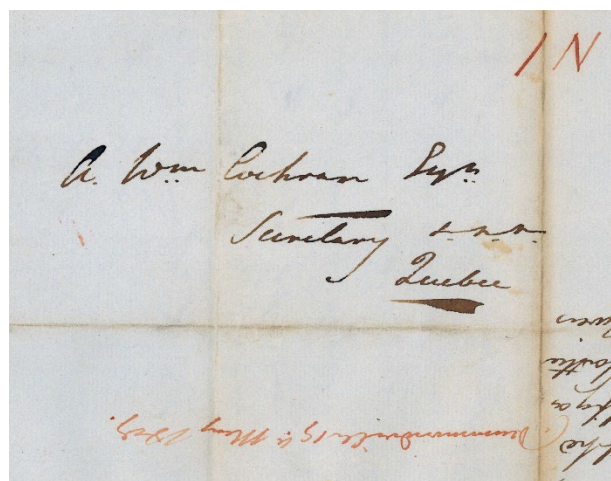 1 N
A. Wm Cochran Esqr.
Secretary &.&.&.
Quebec
Drummondville May